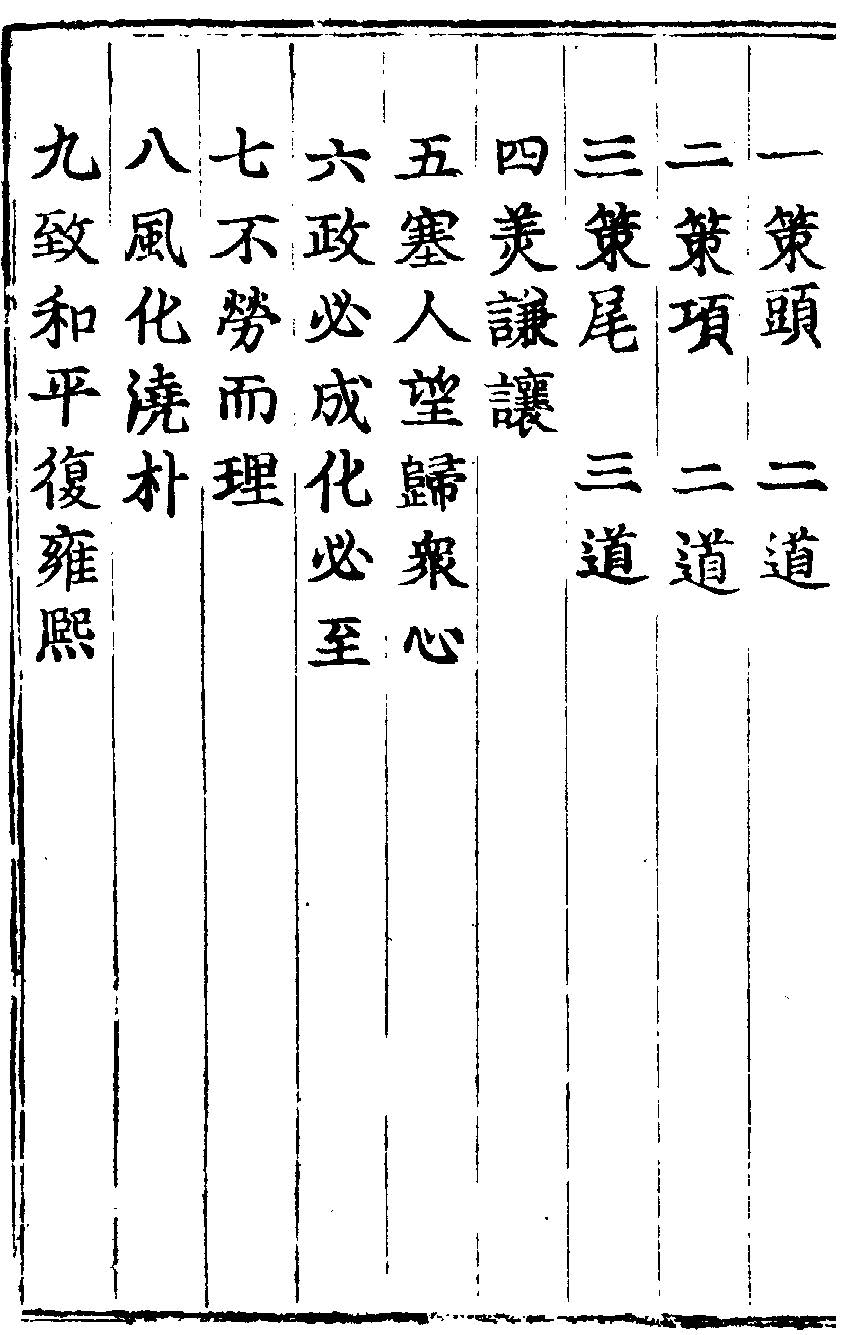 一策頭　二道
二策項　二道
三策尾　三道
四美謙讓
五塞人望歸衆心
六政必成化必至
七不勞而理
八風化澆朴
九致和平復雍熙